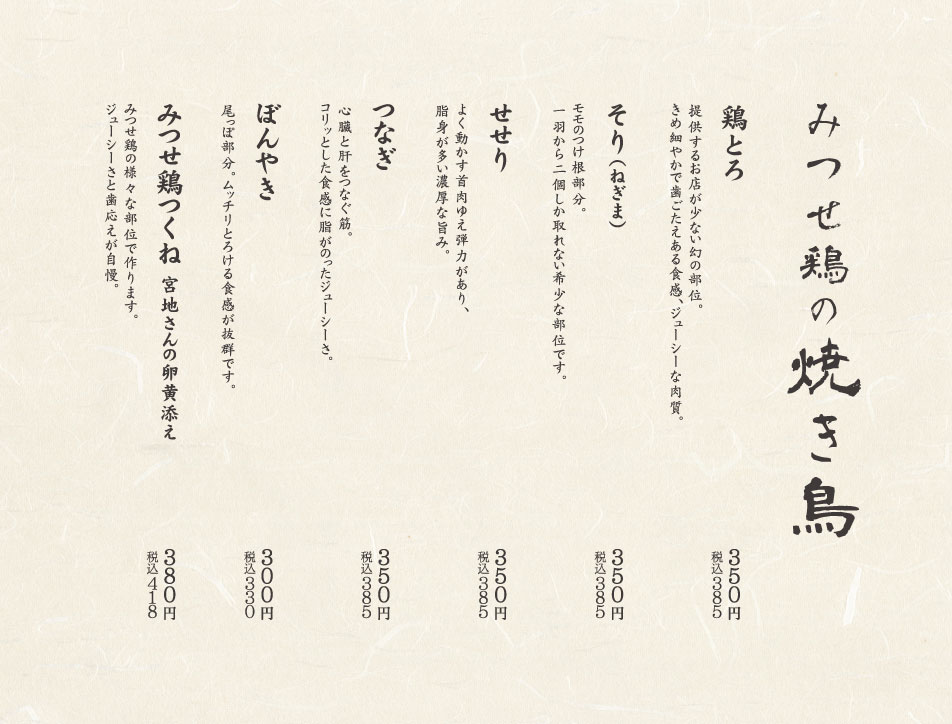 みつせ鶏の焼き鳥
鶏とろ
提供するお店が少ない幻の部位。
きめ細やかで歯ごたえある食感、ジューシーな肉質。
350円
税込385
そり(ねぎま)
モモのつけ根部分。
一羽から二個しか取れない希少な部位です。
350円
税込385
せせり
よく動かす首肉ゆえ弾力があり、
脂身が多い濃厚な旨み。
350円
税込385
つなぎ
心臓と肝をつなぐ筋。
コリッとした食感に脂がのったジューシーさ。
350円
税込385
ぼんやき
尾っぽ部分。ムッチリとろける食感が抜群です。
300円
税込330
みつせ鶏つくね 宮地さんの卵黄添え
みつせ鶏の様々な部位で作ります。
ジューシーさと歯応えが自慢。
380円
税込418